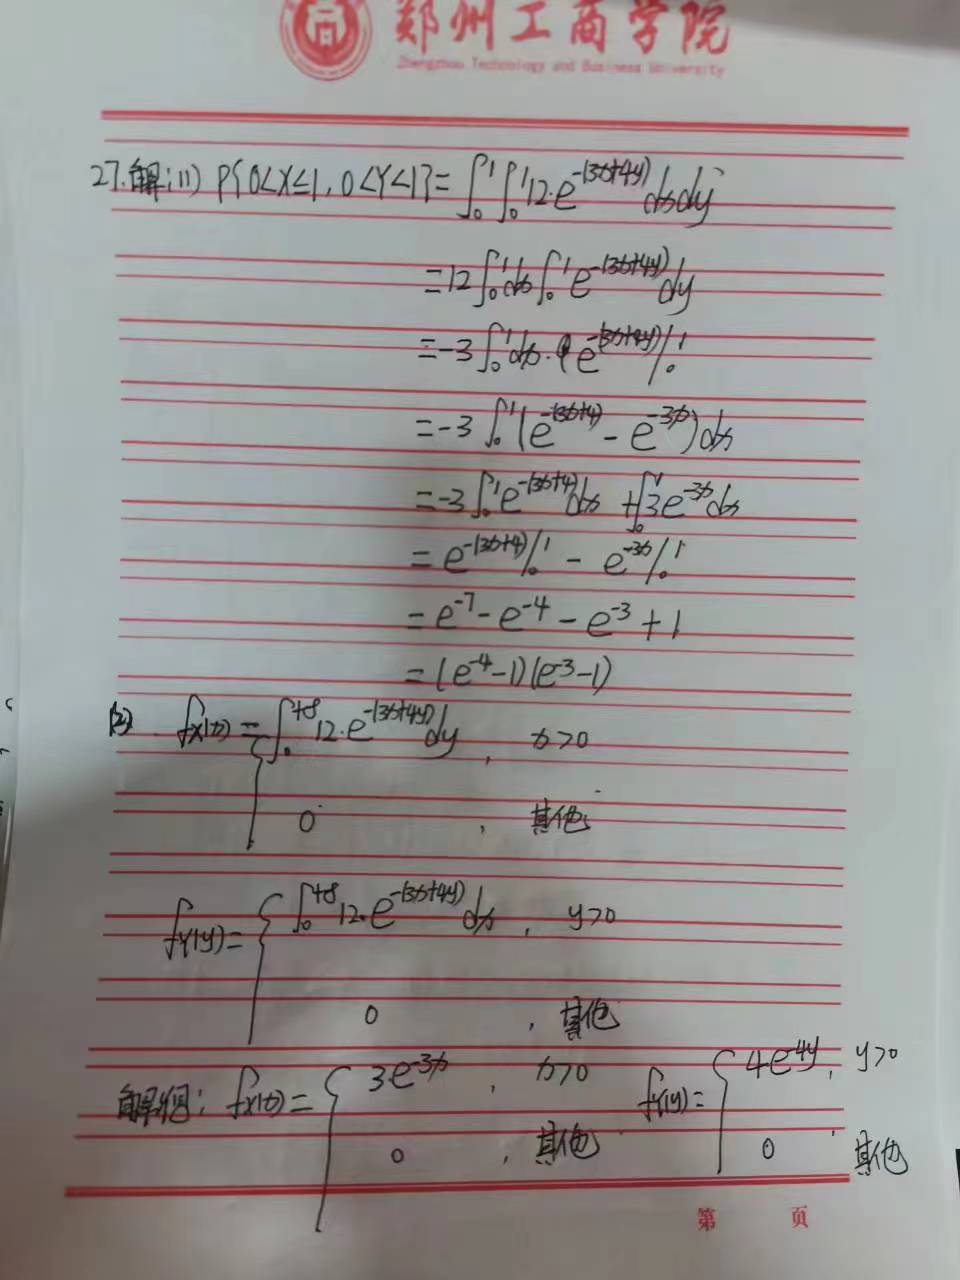 郑州工商学院
Zhengzhou Technology and Business University
27.解:(1) P{0<X≤1,0<Y<1}=∫₀¹∫₀¹12·e^-(3x+4y)dxdy
=12∫₀¹dx∫₀¹e^-(3x+4y)dy
=-3∫₀¹dx·e^-(3x+4y)|₀¹
=-3∫₀¹(e^-(3x+4)-e^-3x)dx
=-3∫₀¹e^-(3x+4)dx+∫₀¹3e^-3xdx
=e^-(3x+4)|₀¹-e^-3x|₀¹
=e^-7-e^-4-e^-3+1
=(e^-4-1)(e^-3-1)
(2) fX(x)={∫₀^+∞12·e^-(3x+4y)dy, x>0
0, 其他
fY(y)={∫₀^+∞12·e^-(3x+4y)dx, y>0
0, 其他
解得: fX(x)={3e^-3x, x>0 fY(y)={4e^-4y, y>0
0, 其他 0, 其他
第 页